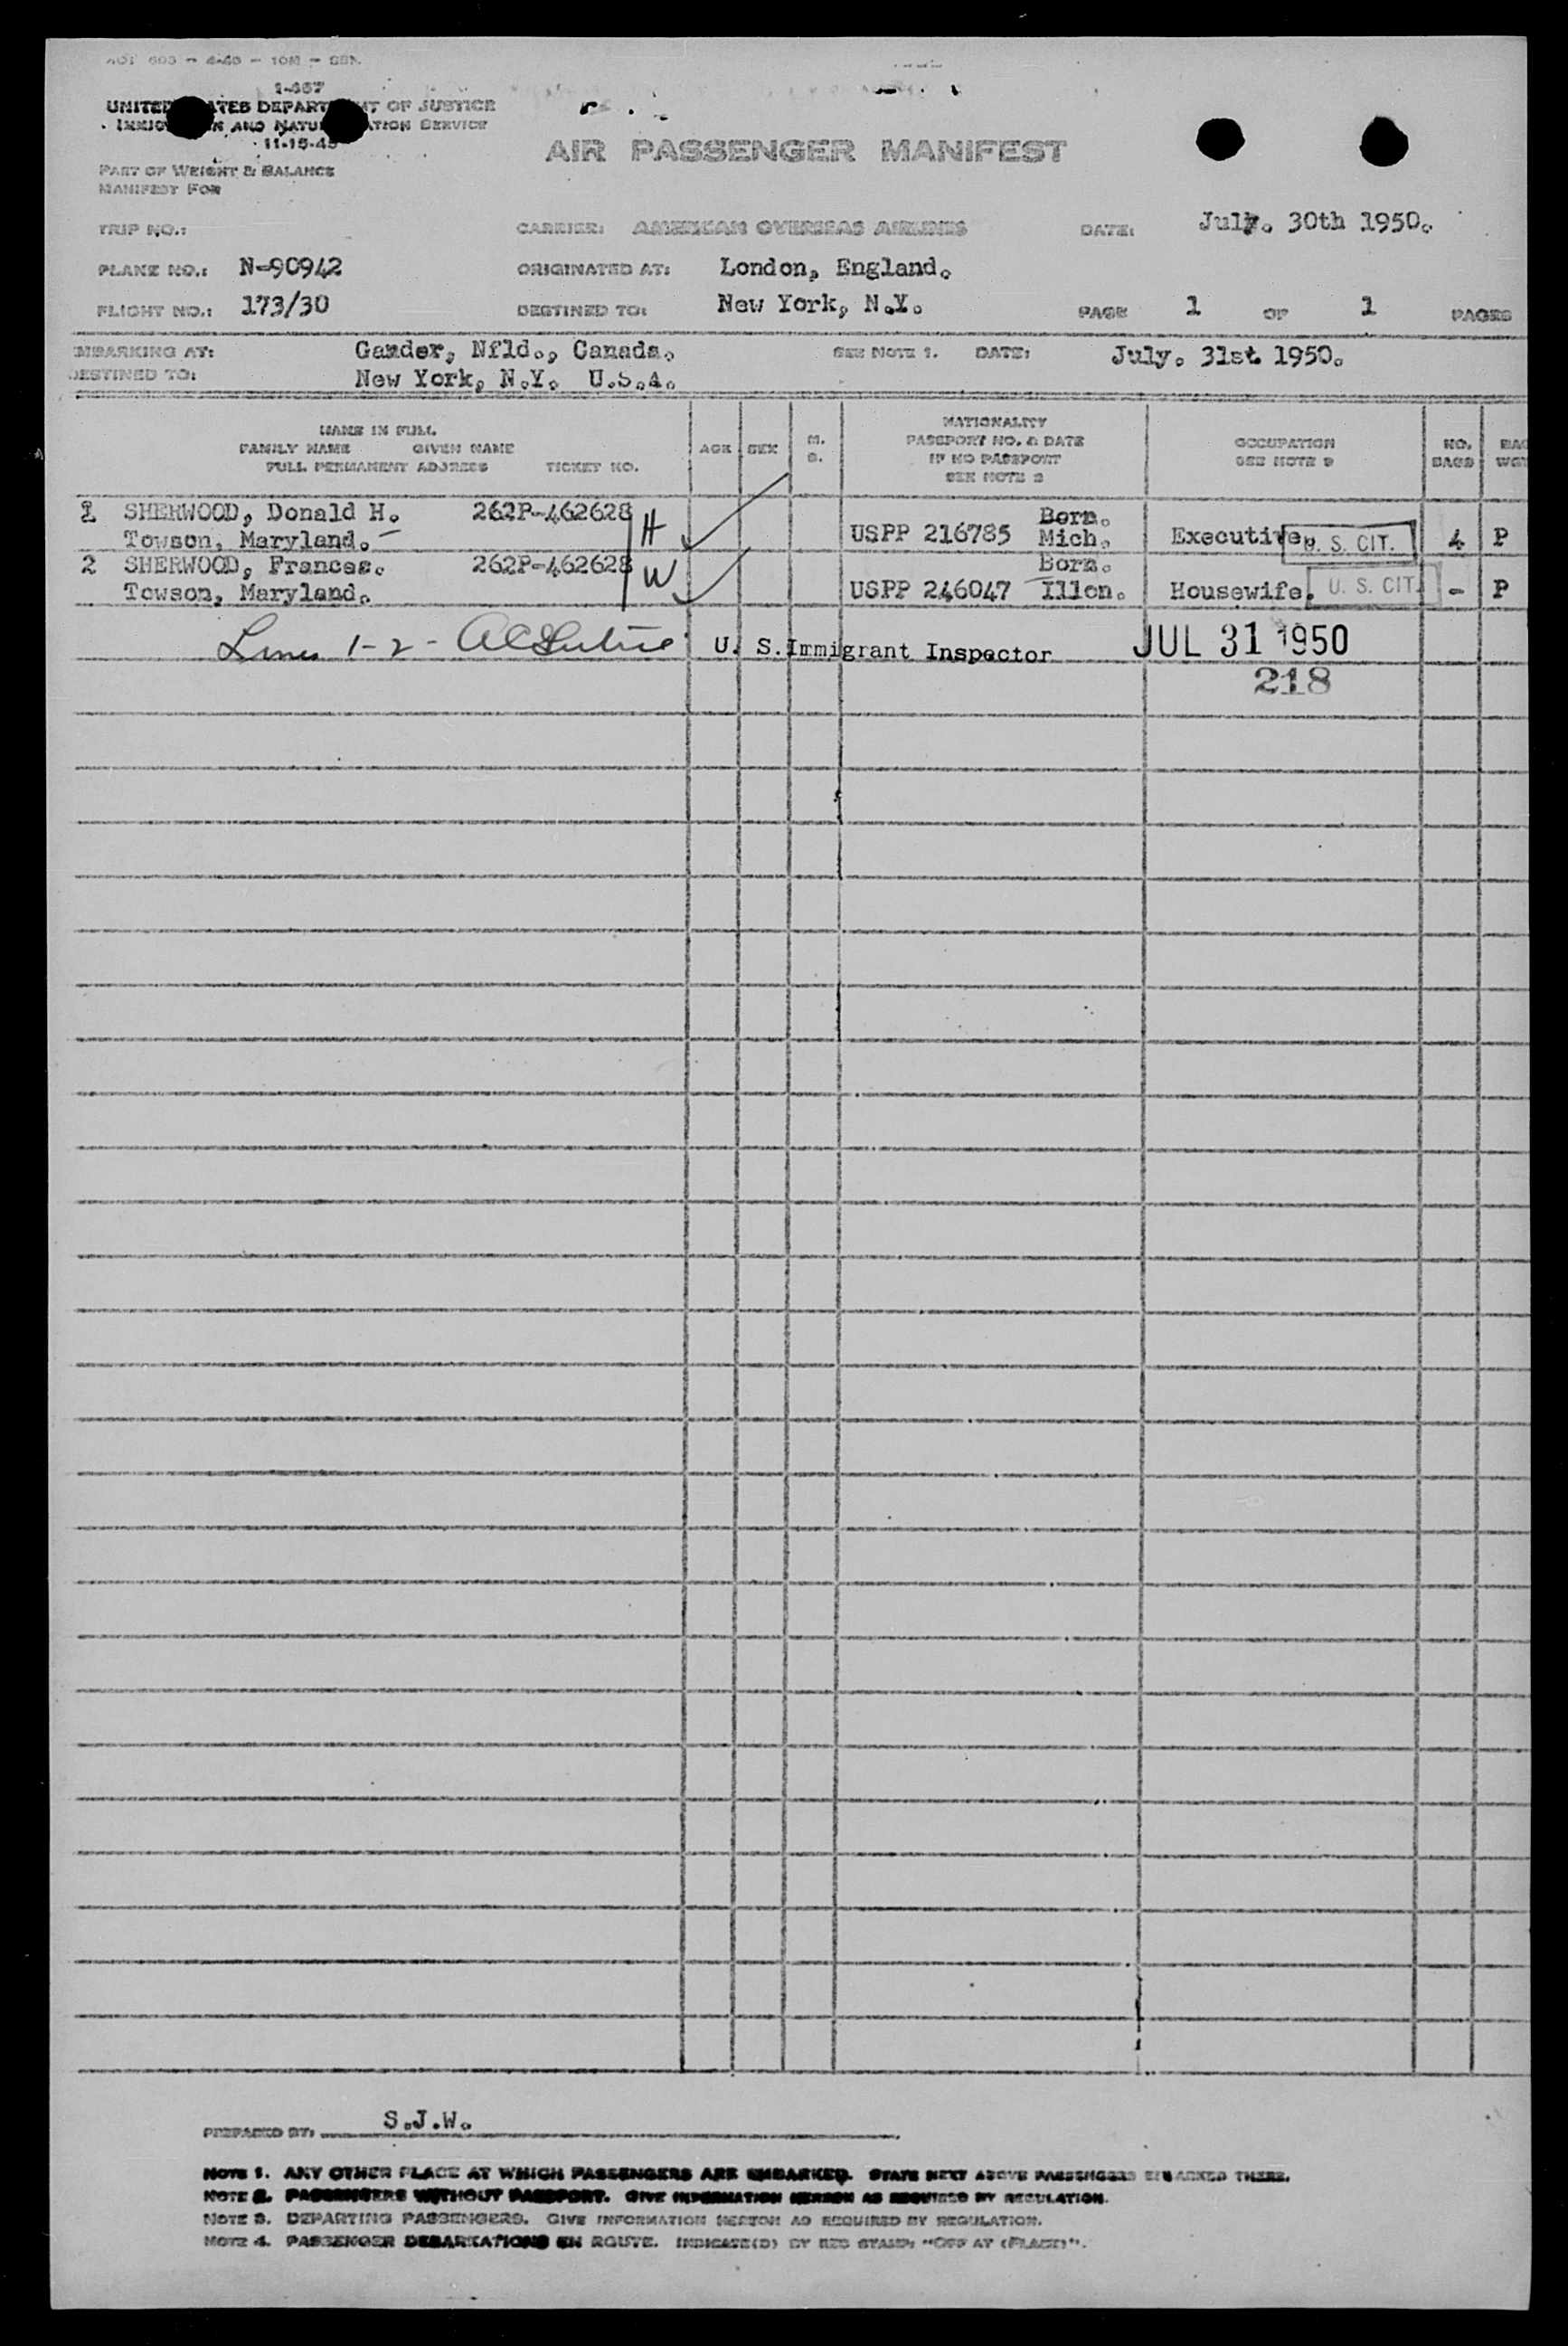 AOF 603 - 4-48 - 10M - SBN
I-467
UNITED STATES DEPARTMENT OF JUSTICE
IMMIGRATION AND NATURALIZATION SERVICE
11-15-45
AIR PASSENGER MANIFEST
PART OF WEIGHT & BALANCE
MANIFEST FOR
TRIP NO.: CARRIER: AMERICAN OVERSEAS AIRLINES DATE: July. 30th 1950.
PLANE NO.: N-90942 ORIGINATED AT: London, England.
FLIGHT NO.: 173/30 DESTINED TO: New York, N.Y. PAGE 1 OF 1 PAGES
EMBARKING AT: Gander, Nfld., Canada. SEE NOTE 1. DATE: July. 31st 1950.
DESTINED TO: New York, N.Y. U.S.A.
NAME IN FULL
FAMILY NAME GIVEN NAME
FULL PERMANENT ADDRESS TICKET NO.
AGE SEX M. S.
NATIONALITY
PASSPORT NO. & DATE
IF NO PASSPORT
SEE NOTE 2
OCCUPATION
SEE NOTE 3
NO.
BAGS
BAG
WGT
1 SHERWOOD, Donald H. 262P-462628 H Born.
Towson, Maryland. USPP 216785 Mich. Executive. U. S. CIT. 4 P
2 SHERWOOD, Frances. 262P-462628 W Born.
Towson, Maryland. USPP 246047 Illon. Housewife. U. S. CIT. - P
Lines 1-2- U. S. Immigrant Inspector JUL 31 1950
218
PREPARED BY: S.J.W.
NOTE 1. ANY OTHER PLACE AT WHICH PASSENGERS ARE EMBARKED. STATE NEXT ABOVE PASSENGERS EMBARKED THERE.
NOTE 2. PASSENGERS WITHOUT PASSPORT. GIVE INFORMATION HEREON AS REQUIRED BY REGULATION.
NOTE 3. DEPARTING PASSENGERS. GIVE INFORMATION HEREON AS REQUIRED BY REGULATION.
NOTE 4. PASSENGER DEBARKATIONS EN ROUTE. INDICATE(D) BY RED STAMP: "OFF AT (PLACE)".